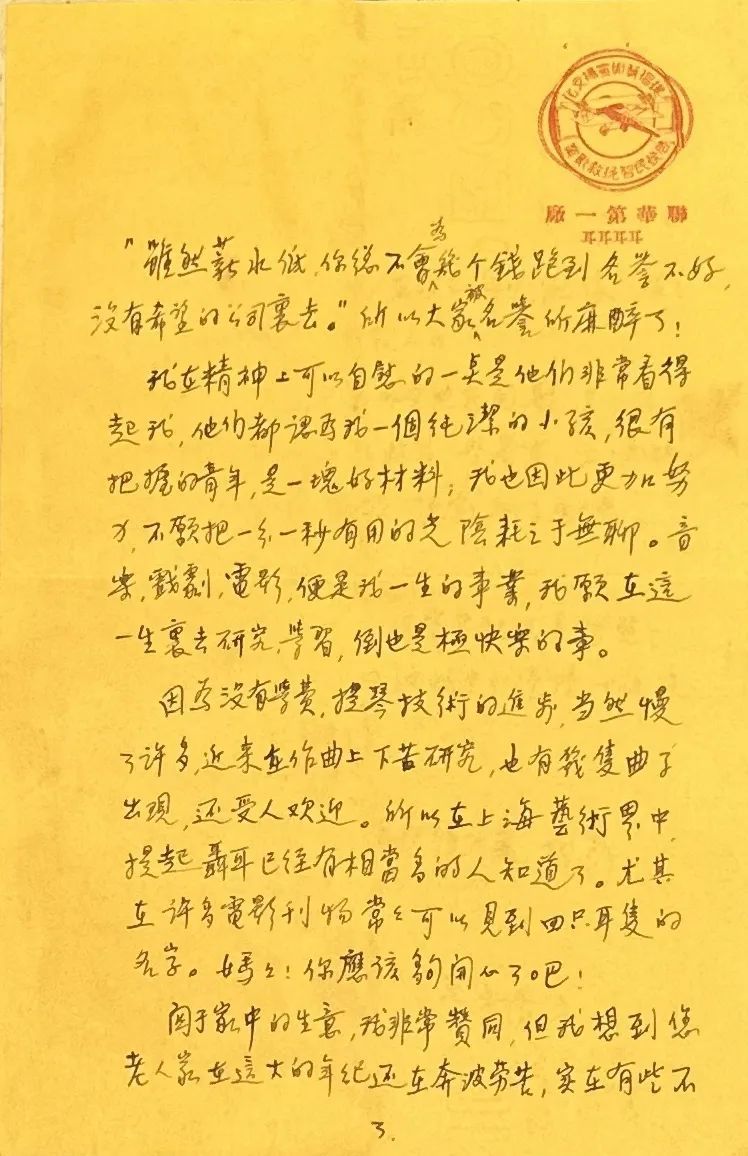 提倡藝術宣揚文化
啟發民智挽救影業
聯華第一廠
"雖然薪水低,你總不會為幾个錢跑到名譽不好,
沒有希望的公司裏去。"所以大家被名譽所麻醉了!
我在精神上可以自慰的一点是他们非常看得
起我,他们都認為我一個純潔的小孩,很有
把握的青年,是一塊好材料;我也因此更加努
力,不願把一分一秒有用的光陰耗之于無聊。音
樂,戲劇,電影,便是我一生的事業,我願在這
一生裏去研究,學習,倒也是極快樂的事。
因為沒有學費,提琴技術的進步,当然慢
了許多,近来在作曲上下苦研究,也有幾隻曲子
出現,还受人欢迎。所以在上海藝術界中,
提起聶耳已经有相當多的人知道了。尤其
在許多電影刊物常々可以見到四只耳隻的
名字。媽々!你應該夠開心了吧!
関于家中的生意,我非常贊同,但我想到您
老人家在這大的年纪还在奔波劳苦,实在有些不
3.